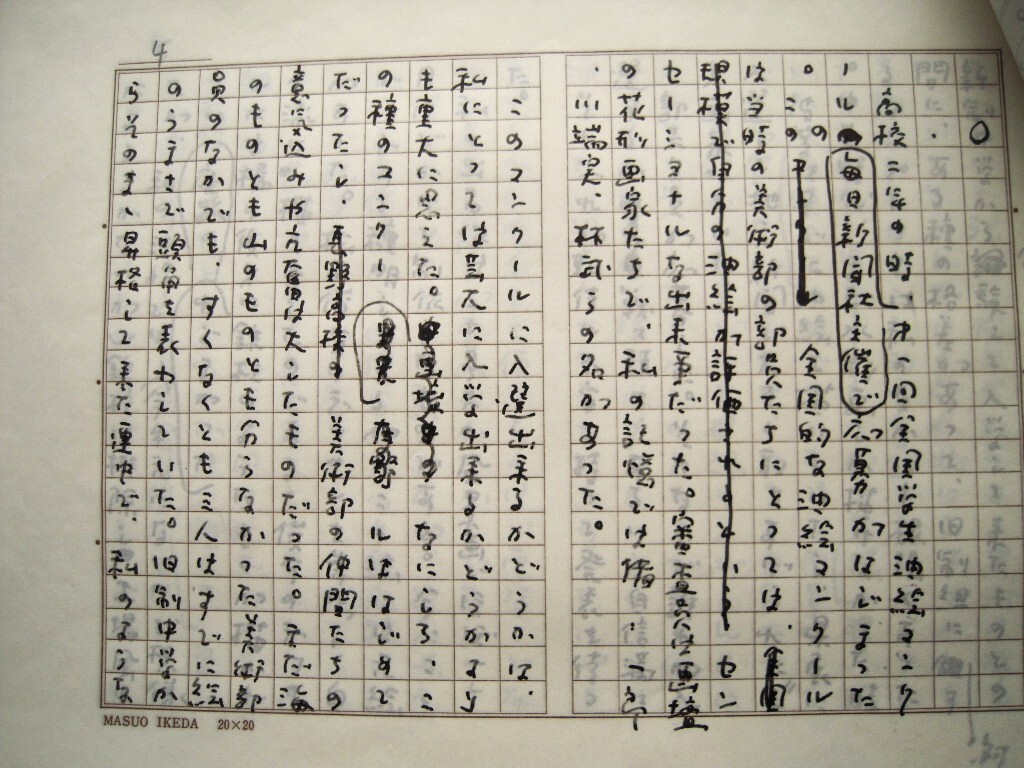 4
○
高校二年の時、オ一回全国学生油絵コンク
ール毎日新聞社主催でがはじまった
。この全国的な油絵コンクール
は当時の美術部の部員たちにとっては、全国
規模で自分の油絵が評価されるという セン
セーショナルな出来事だった。審査員は画壇
の花形画家たちで、私の記憶では猪、一郎
、川端実、林武らの名があった。
このコンクールに入選出来るかどうかは、
私にとっては芸大に入学出来るかどうかより
も重大に思えた。なにしろ、こ
の種のコンクールははじめて
だったし、長野高校の美術部の仲間たちの
意気込みや亢奮は大したものだった。まだ海
のものとも山のものとも分らなかった美術部
員のなかでも、すくなくとも三人はすでに絵
のうまさで頭角を表わしていた。旧制中学か
らそのまま昇格して来た連中で、私のような
MASUO IKEDA 20×20